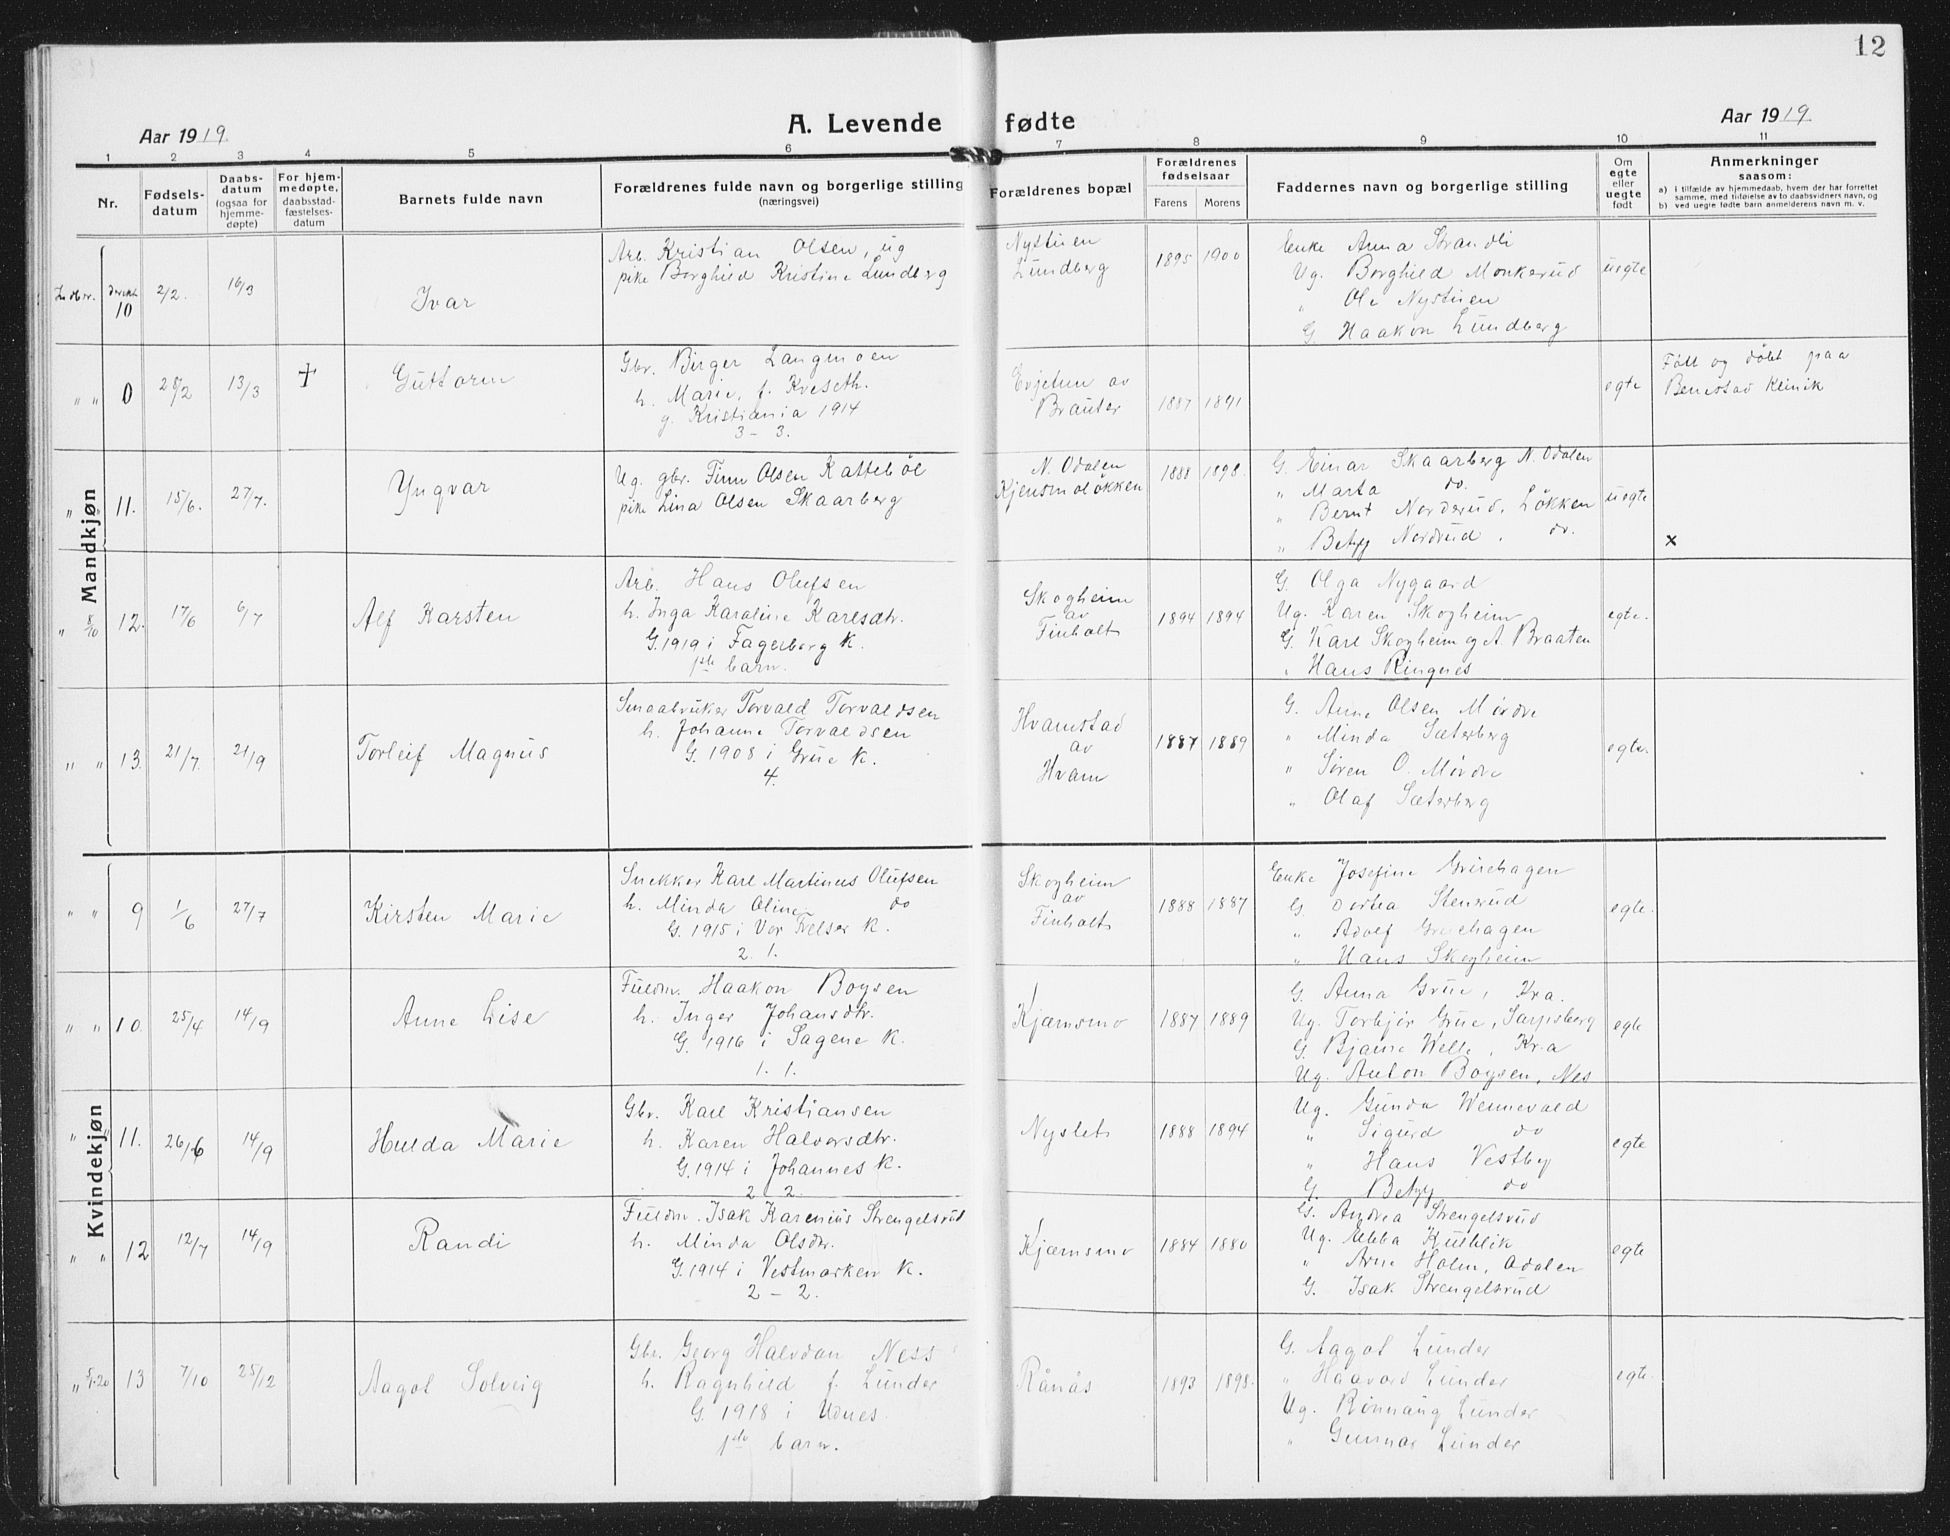 12
Aar 1919.
A. Levende fødte
Aar 1919
1 2 3 4 5 6 7 8 9 10 11
Nr.
Fødsels-
datum
Daabs-
datum
(ogsaa for
hjemme-
døpte)
For hjem-
medøpte,
daabsstad-
fæstelses-
datum
Barnets fulde navn
Forældrenes fulde navn og borgerlige stilling
(næringsvei)
Forældrenes bopæl
Forældrenes
fødselsaar
Farens Morens
Faddernes navn og borgerlige stilling
Om
egte
eller
uegte
født
Anmerkninger
saasom:
a) i tilfælde av hjemmedaab, hvem der har forrettet
samme, med tilføielse av to daabsvidners navn, og
b) ved uegte fødte barn anmelderens navn m. v.
Mandkjøn
10 2/2. 16/3
Ivar
Arb. Kristian Olsen, ug
pike Borghild Kristine Lundberg
Nystuen
Lundberg
1895 1900
Enke Anna Strandli
Ug. Borghild Monkerud
" Ole Nystuen
G. Haakon Lundberg
uegte
" " 0 28/2 13/3 +
Guttorm
Gbr. Birger Langmoen
h. Marie, f. Kveseth.
g. Kristiania 1914
3 – 3.
Evjetun av
Brauter
1887 1891
egte
Født og døbt paa
Benestad Klinik
" " 11. 15/6. 27/7.
Yngvar
Ug. gbr. Finn Olsen Kattebøl
pike Lina Olsen Skaarberg
N. Odalen
Kjensmoløkken
1888 1898.
G. Einar Skaarberg N. Odalen
" Marta do.
" Bernt Norderud, Løkken
" Betzy Nordrud. do.
uegte
x
" 8/10 12. 17/6 6/7
Alf Karsten
Arb. Hans Olufsen
h. Inga Karoline Karlsdtr.
G. 1919 i Fagerborg K.
1ste barn.
Skogheim
av
Finholt
1894 1894
G. Olga Nygaard
Ug. Karen Skogheim
G. Karl Skogheim og A. Braaten
" Hans Ringnes
egte.
" " 13. 21/7. 21/9
Torleif Magnus
Smaabruker Torvald Torvaldsen
h. Johanne Torvaldsen
G. 1908 i Grue K.
4.
Hvamstad
av
Hvam
1887 1889
G. Anne Olsen Mørdre
" Minda Sæterberg
" Søren O. Mørdre
" Olaf Sæterberg
egte.
Kvindekjøn
" " 9 1/6 27/7
Kirsten Marie
Snekker Karl Martinus Olufsen
h. Minda Oline do
G. 1915 i Vor Frelser K.
2. 1.
Skogheim
av
Finholt
1888 1887
Enke Josefine Gruehagen
G. Dortea Stensrud
" Adolf Gruehagen
" Hans Skogheim
egte.
" " 10. 25/4 14/9
Anne Lise
Fuldm. Haakon Boysen
h. Inger Johansdtr.
G. 1916 i Sagene K.
1. 1.
Kjæmsmo
1887 1889
G. Anna Grue, Kra.
Ug. Torbjør Grue, Sarpsberg
G. Bjarne Welle, Kra
Ug. Anton Boysen, Nes
egte
" " 11. 26/6 14/9
Hulda Marie
Gbr. Karl Kristiansen
h. Karen Halvorsdtr.
G. 1914 i Johannes K.
2 2.
Nyslet
1888 1894
Ug. Gunda Wennevald
" Sigurd do
" Hans Vestby
G. Betzy do
egte
" " 12 12/7 14/9
Randi
Fuldm. Isak Karenius Strengelsrud
h. Minda Olsdtr.
G. 1914 i Vestmarken K.
2 – 2.
Kjæmsmo
1884 1880
G. Andrea Strengelsrud
Ug. Ebba Kulblik
" Arne Holm, Odalen
G. Isak Strengelsrud
egte
" 13 7/10 25/12
Aagot Solveig
Gbr. Georg Halvdan Ness
h. Ragnhild f. Lunder
G. 1918 i Udnes.
1ste barn.
Rånås
1893 1898.
G. Aagot Lunder
" Haavard Lunder
Ug. Rønnaug Lunder
" Gunnar Lunder
egte.